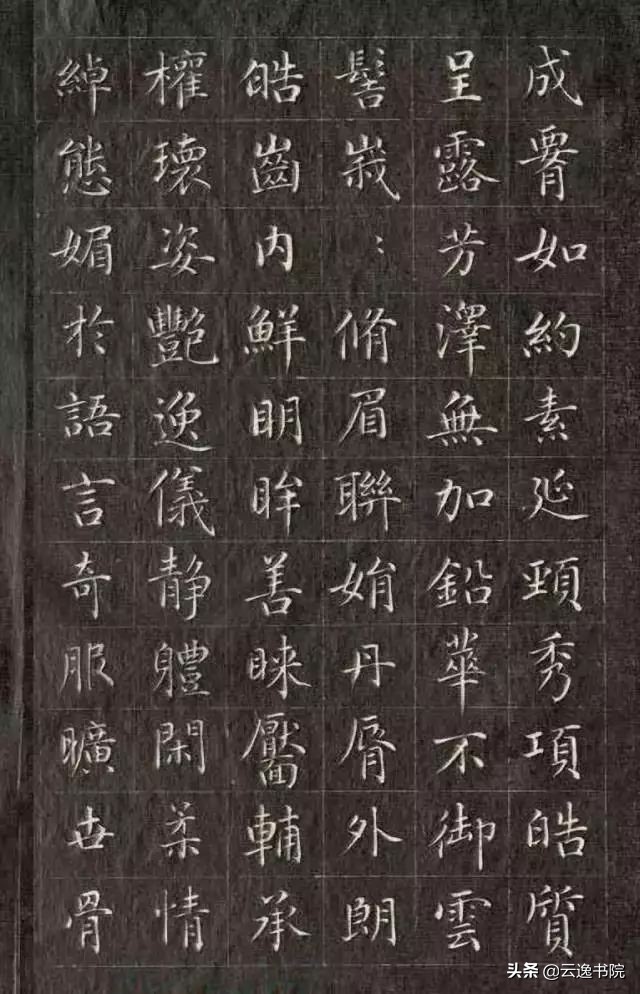 成腰如約素延頸秀項皓質
呈露芳澤無加鉛華不御雲
髻峩：脩眉聯娟丹脣外朗
皓齒内鮮明眸善睞靨輔承
權瓌姿豔逸儀静軆閑柔情
綽態媚於語言奇服曠世骨
头条 @云逸书院